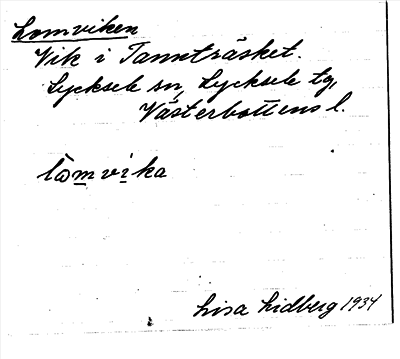 Lomviken
Vik i Tannträsket.
Lycksele sn, Lycksele tg,
Västerbottens l.
lòmvika
Lisa Lidberg 1934